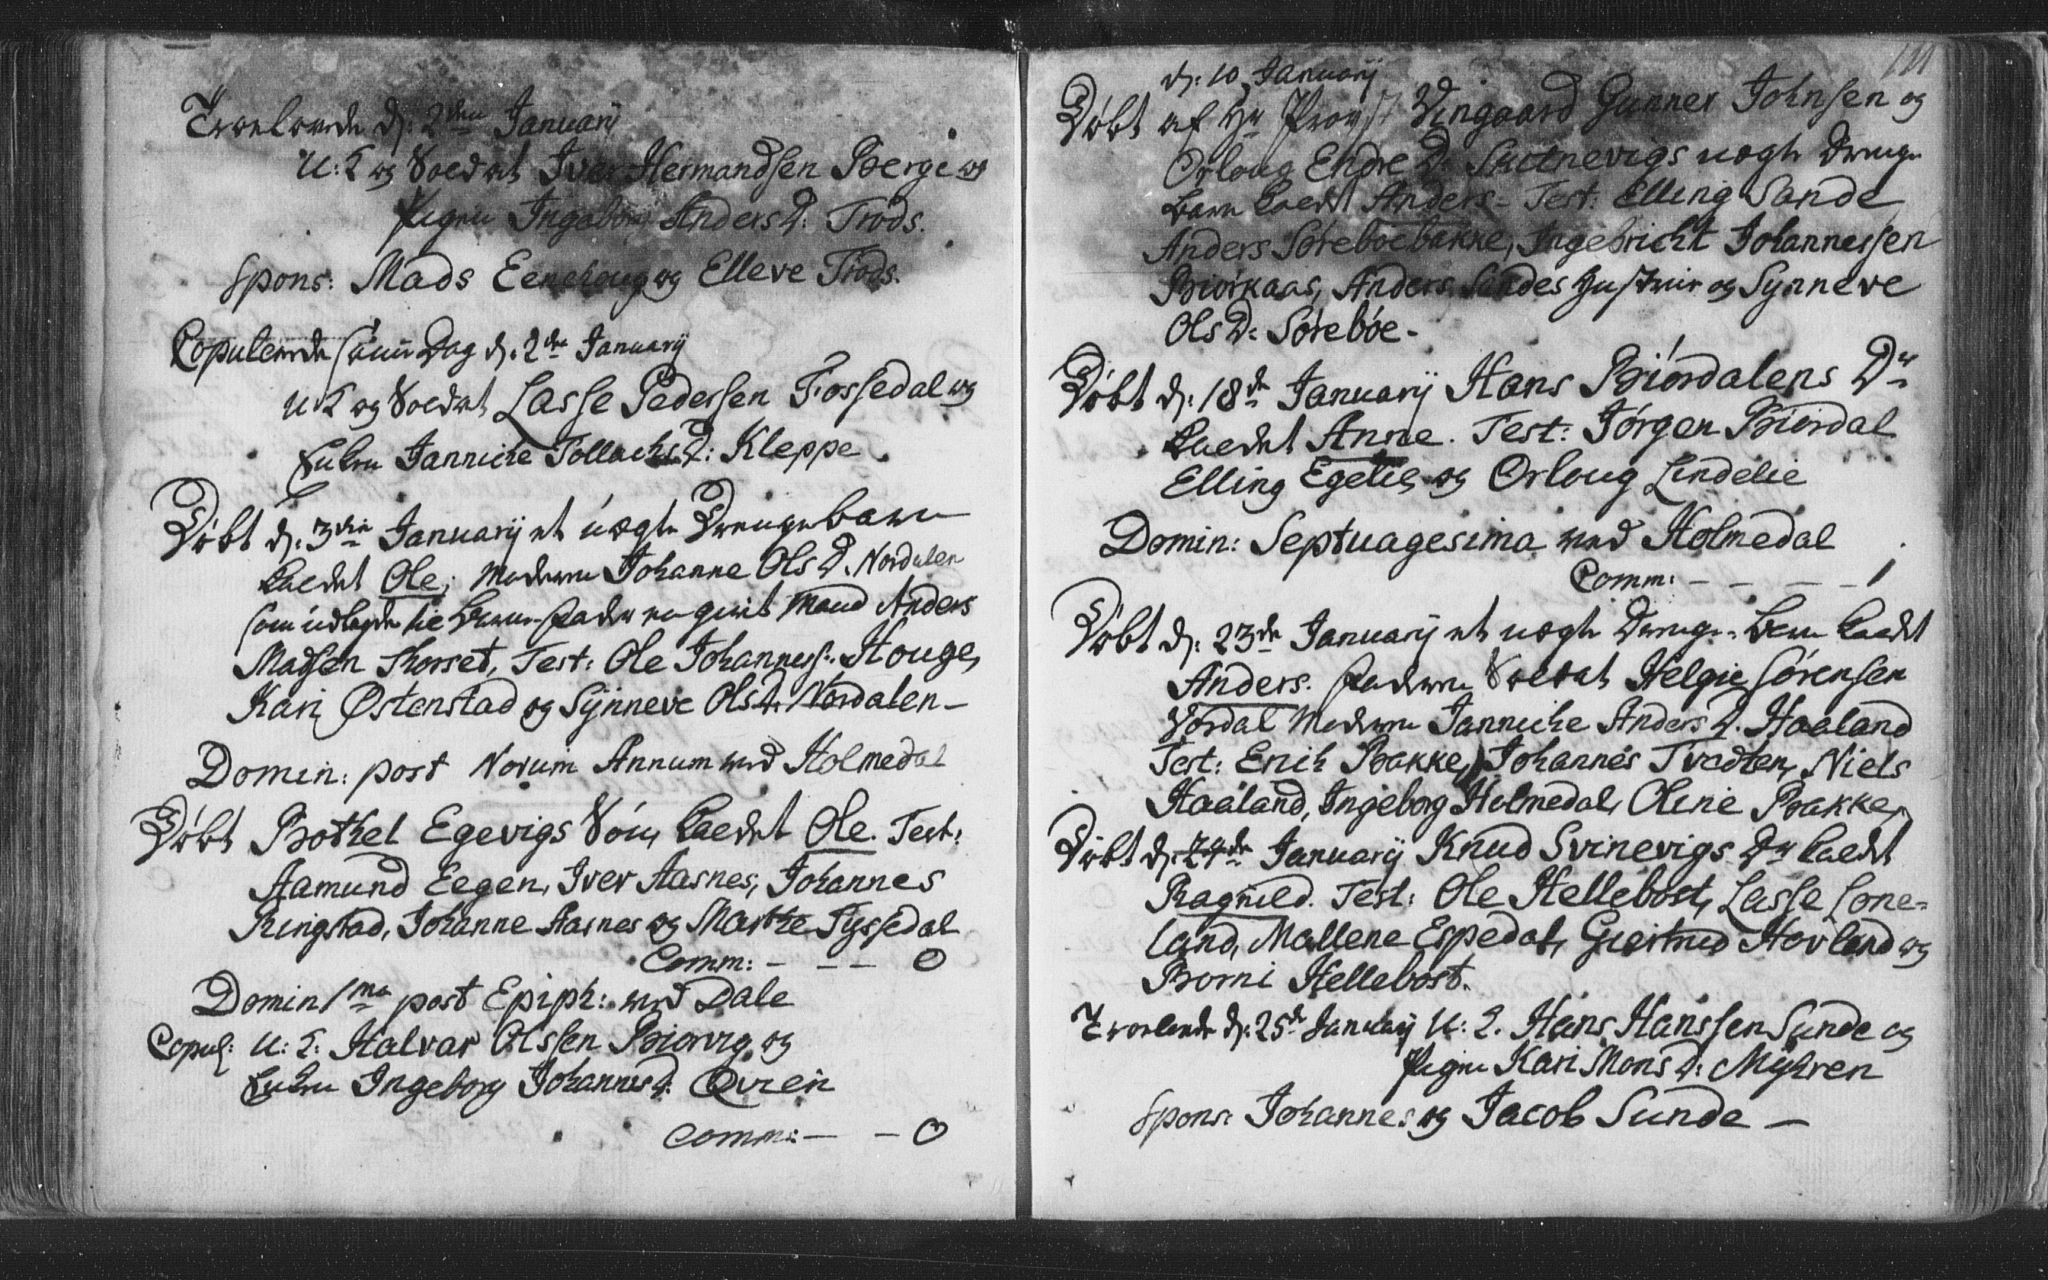 Troelovede d: 2den Januarij
U: K og Soldat Iver Hermandsen Berge og
Pigen Ingeborg Anders D: Trods.
Spons: Mads Eenehoug og Elleve Trods.
Copulerede samme Dag d: 2den Januarij
U: K og Soldat Lasse Pedersen Fossedal og
Enken Jannicke Tollachs D: Kleppe
Døbt d: 3die Januarij et uægte Drengebarn
kaldet Ole, Moderen Johanne Ols D. Nordalen
som udlagde til Barne-Fader en givt Mand Anders
Madsen Thorset, Test: Ole Johanness: Houge,
Kari Østenstad og Synneve Ols D. Nordalen –
Domin: post Novum Annum ved Holmedal
Døbt Bothel Egevigs Søn, kaldet Ole. Test:
Aamund Eegen, Iver Aasnes, Johannes
Ringstad, Johanne Aasnes og Marthe Tyssedal
Comm: – – – 0
Domin 1ma post Epiph: ved Dale
Copul: U: K: Halvar Olssen Biorvig og
Enken Ingeborg Johannes D: Qvien
Comm: – – 0
111
d: 10 Januarij
Døbt af Hr Provst Vingaard Gunner Johnsen og
Orloug Endre D: Svinevigs uægte Drenge
barn kaldet Anders – Test: Elling Sande
Anders Sørebøebakke, Ingebricht Johannessen
Biørkaas, Anders Sandes Hustrue og Synneve
Ols D: Sørebøe –
Døbt d: 18de Januarij Hans Biørdalens Dr
kaldet Anne. Test: Jørgen Biørdal
Elling Egelie, og Orloug Lindelie
Domin: Septuagesima ved Holmedal
Comm: – – – – 1
Døbt d: 23de Januarij et uægte Drenge-Barn kaldet
Anders. Faderen Soldat Helgie Sørensen
Vordal Moderen Jannicke Anders D. Haaland
Test: Erich Bakke, Johannes Tvedten, Niels
Haaland, Ingeborg Holmedal, Oline Bakke,
Døbt d: 24de Januarij Knud Svinevigs Dr kaldet
Ragnild. Test: Ole Hellebost, Lasse Lone-
land, Mallene Espedal, Giertrud Hovland og
Borni Hellebost.
Troelovede d: 25de Januarij U: K. Hans Hanssen Sunde og
Pigen Kari Mons D: Myhren
Spons: Johannes og Jacob Sunde –